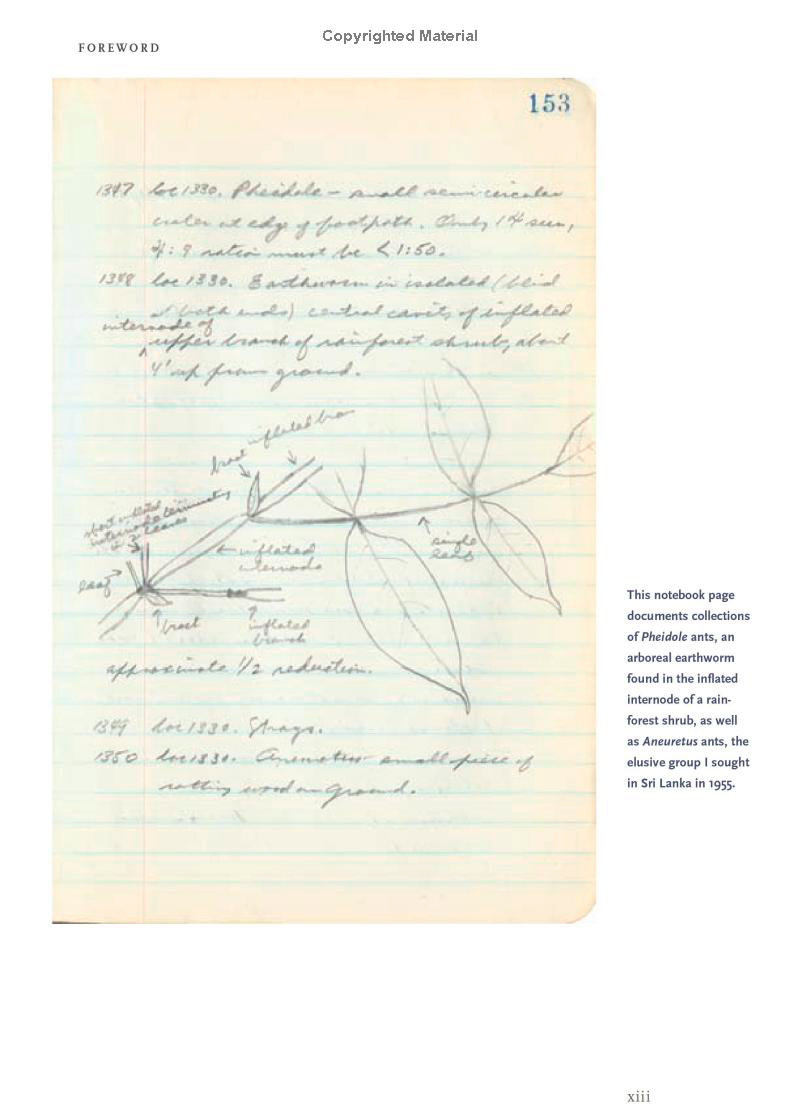 Copyrighted Material
FOREWORD
153
1347 loc 1330. Pheidole – small semicircular
crater at edge of footpath. Only 1 ♃ seen,
♃: ♀ ratio must be < 1:50.
1348 loc 1330. Earthworm in isolated (blid
at both ends) central cavity of inflated
internode of
^ upper branch of rainforest shrub, about
4' up from ground.
inflated bran
bract
short inflated
internode terminating
in 2 leaves
single
leaf
← inflated
internode
leaf
bract
inflated
branch
approximate 1/2 reduction.
1349 loc 1330. Strays.
1350 loc 1330. Aneuretus small piece of
rotting wood on ground.
This notebook page
documents collections
of Pheidole ants, an
arboreal earthworm
found in the inflated
internode of a rain-
forest shrub, as well
as Aneuretus ants, the
elusive group I sought
in Sri Lanka in 1955.
xiii